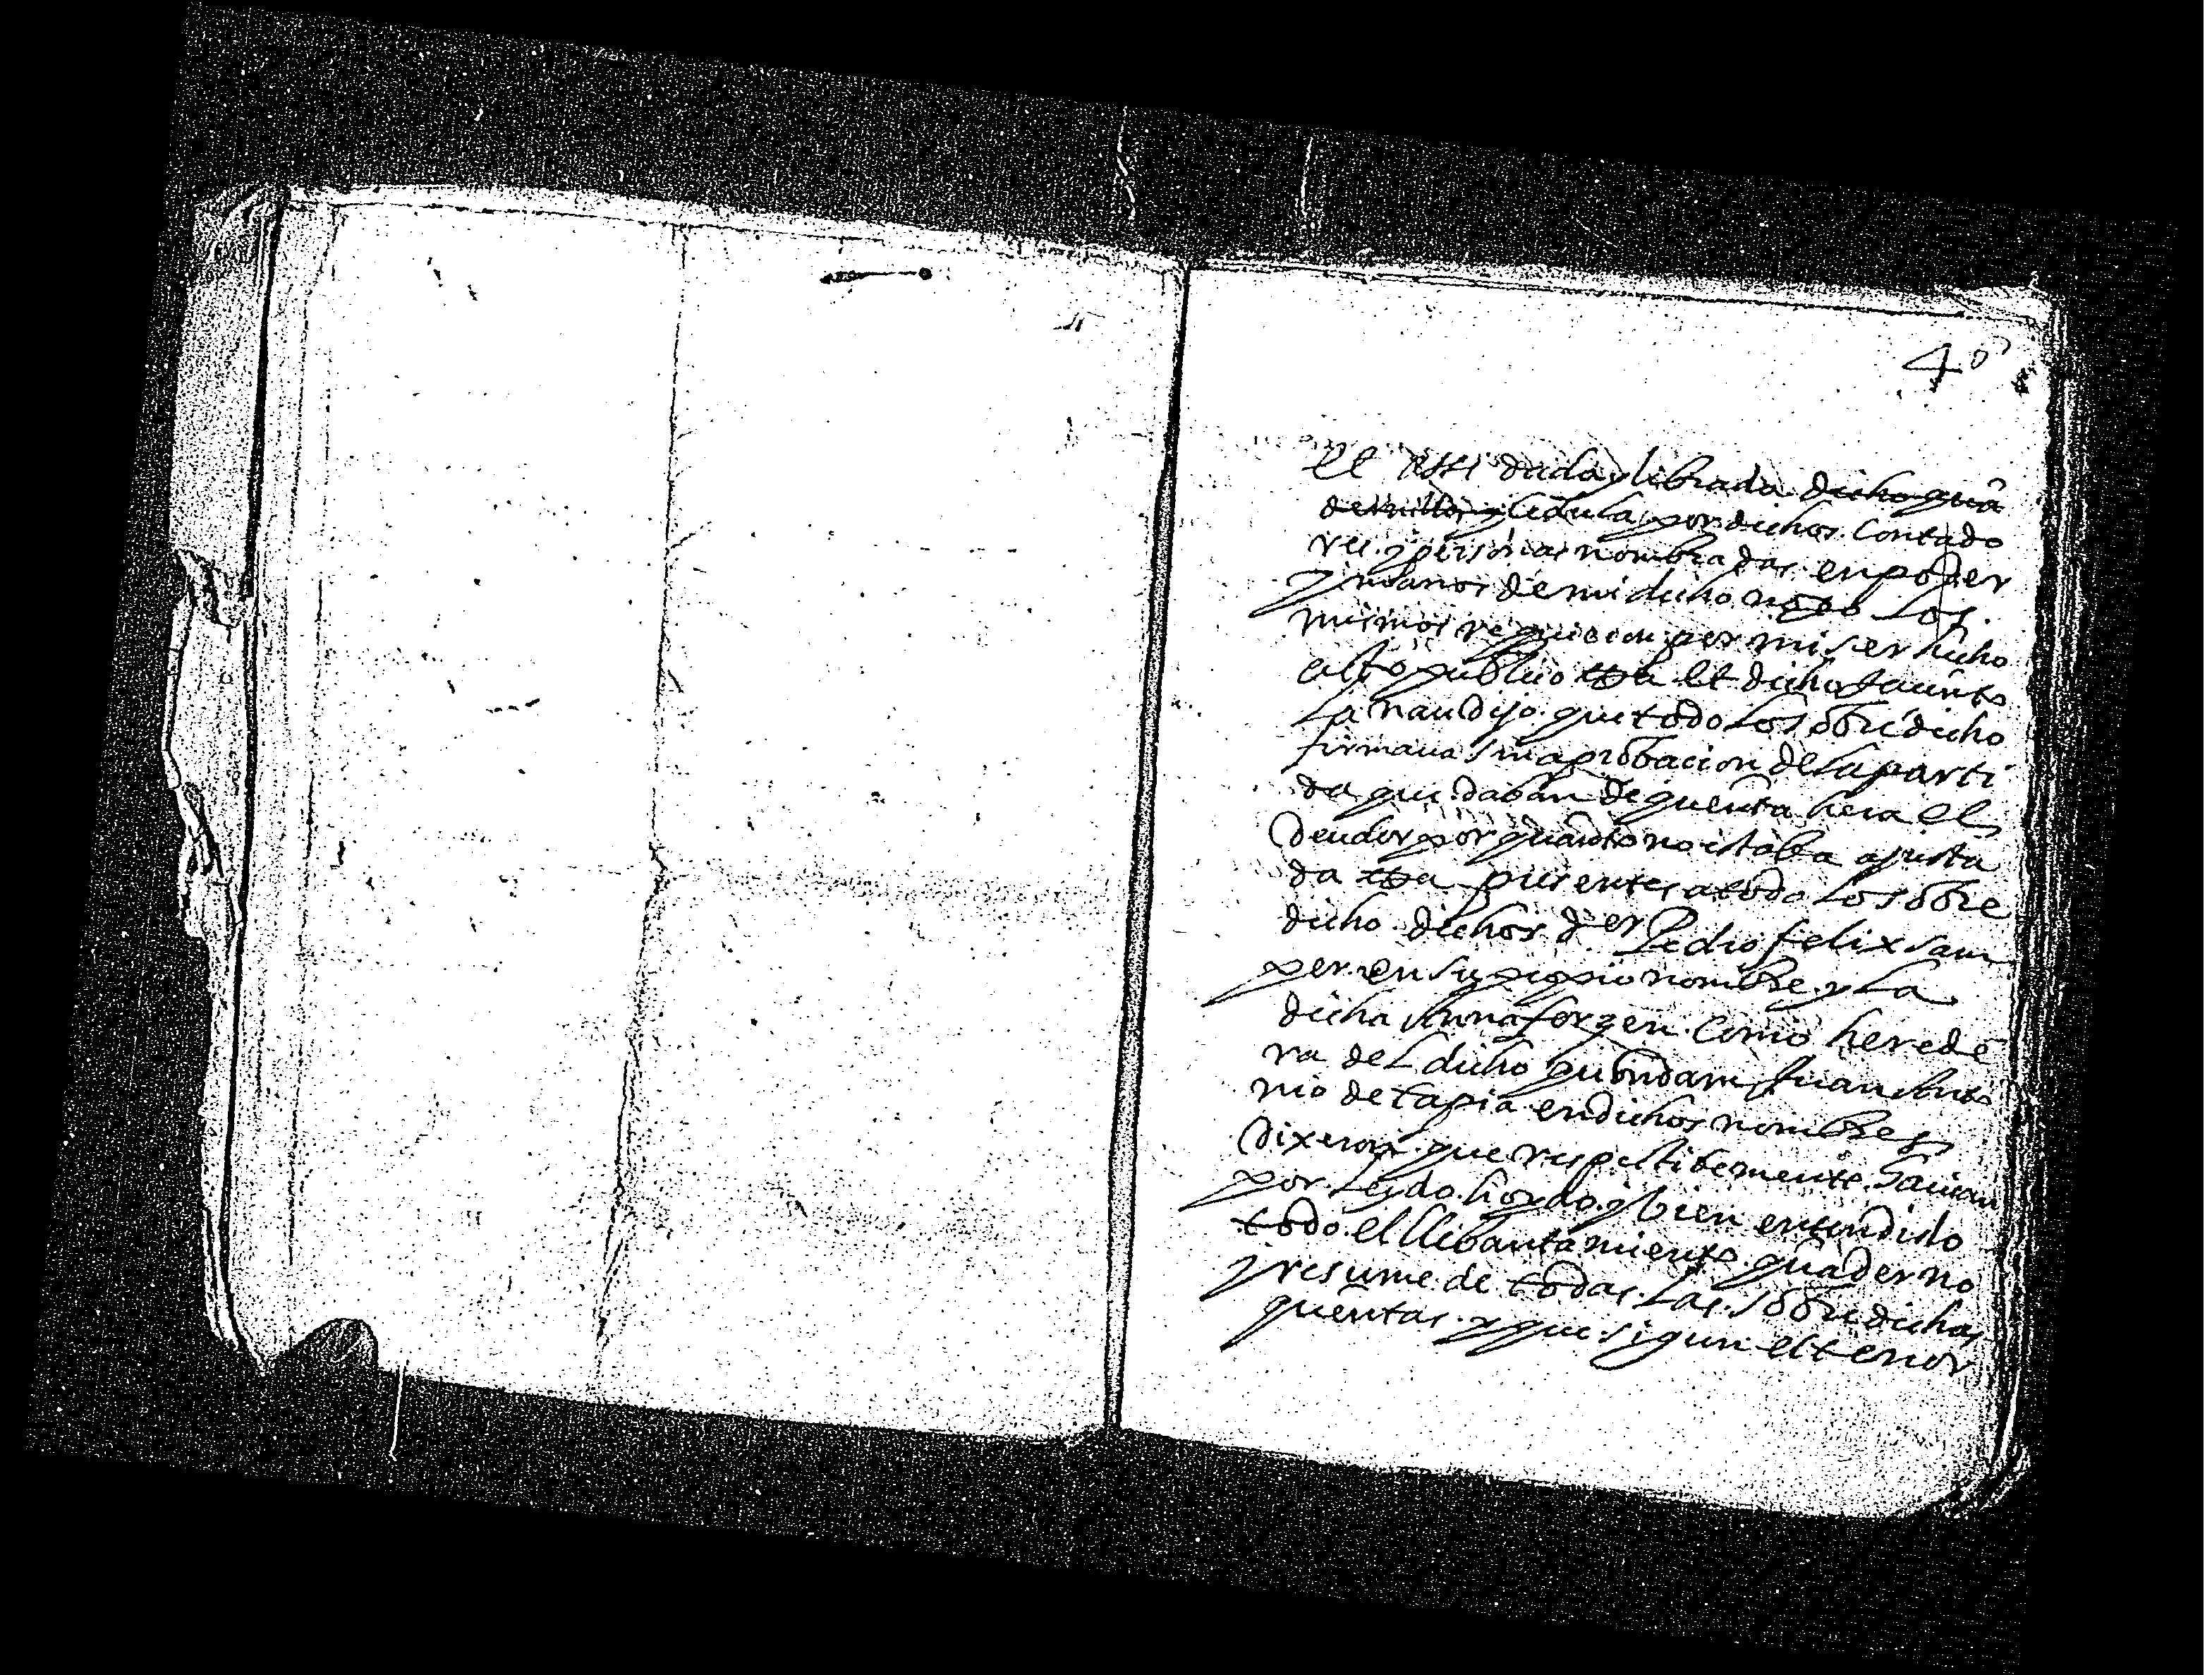 40
Et assi dada y librada dicho qua
dernillo y cedula por dichos contado
res y personas nombradas en poder
y manos de mi dicho no.º Los
mismos requieren por mi ser hicho
acto publico et el dicho Jacinto
Lanau dijo que todo lo sobredicho
firmaua sin aprobacion de la parti
da que daban de quenta hera el
deudor por quanto no estaba ajusta
da presentes a todo lo sobre
dicho dichos Pedro felix sam
per en su propio nombre y La
dicha Anna forgen como herede
ra del dicho quondam Juan Anto
nio de tapia en dichos nombres
Dixeron que respectibemente hauian
por leydo hoydo y bien entendido
todo el llibantamiento quaderno
y resume de todas las sobredichas
quentas y que sigun el tenor